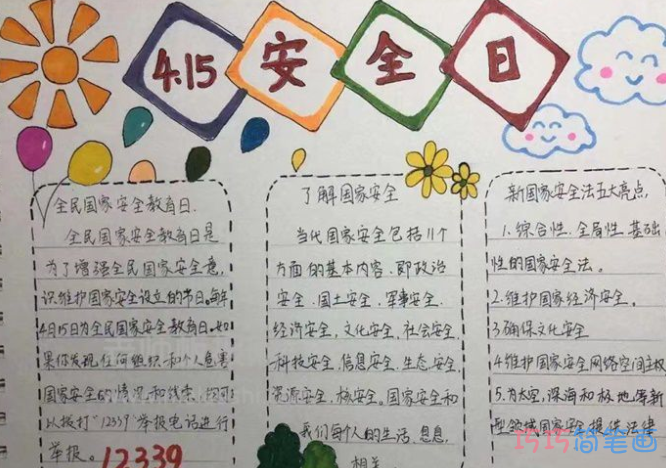 4.15安全日
全民国家安全教育日.
全民国家安全教育日是
为了增强全民国家安全意
识维护国家安全设立的节日。每年
4月15日为全民国家安全教育日.如
果你发现任何组织和个人危害
国家安全的情况和线索,
以拨打"12339"举报电话进行
举报。12339
了解国家安全
当代国家安全包括11个
方面的基本内容.即政治
安全.国土安全.军事安全.
经济安全,文化安全,社会安全
科技安全,信息安全,生态安全
资源安全,核安全。国家安全和
我们每个人的生活,息息
相关
新国家安全法五大亮点,
1.综合性.全局性.基础
性的国家安全法。
2.维护国家经济安全.
3.确保文化安全
4.维护国家安全网络空间主权
5.为太空,深海和极地等新
型领域国家安全提供法律
巧巧简笔画